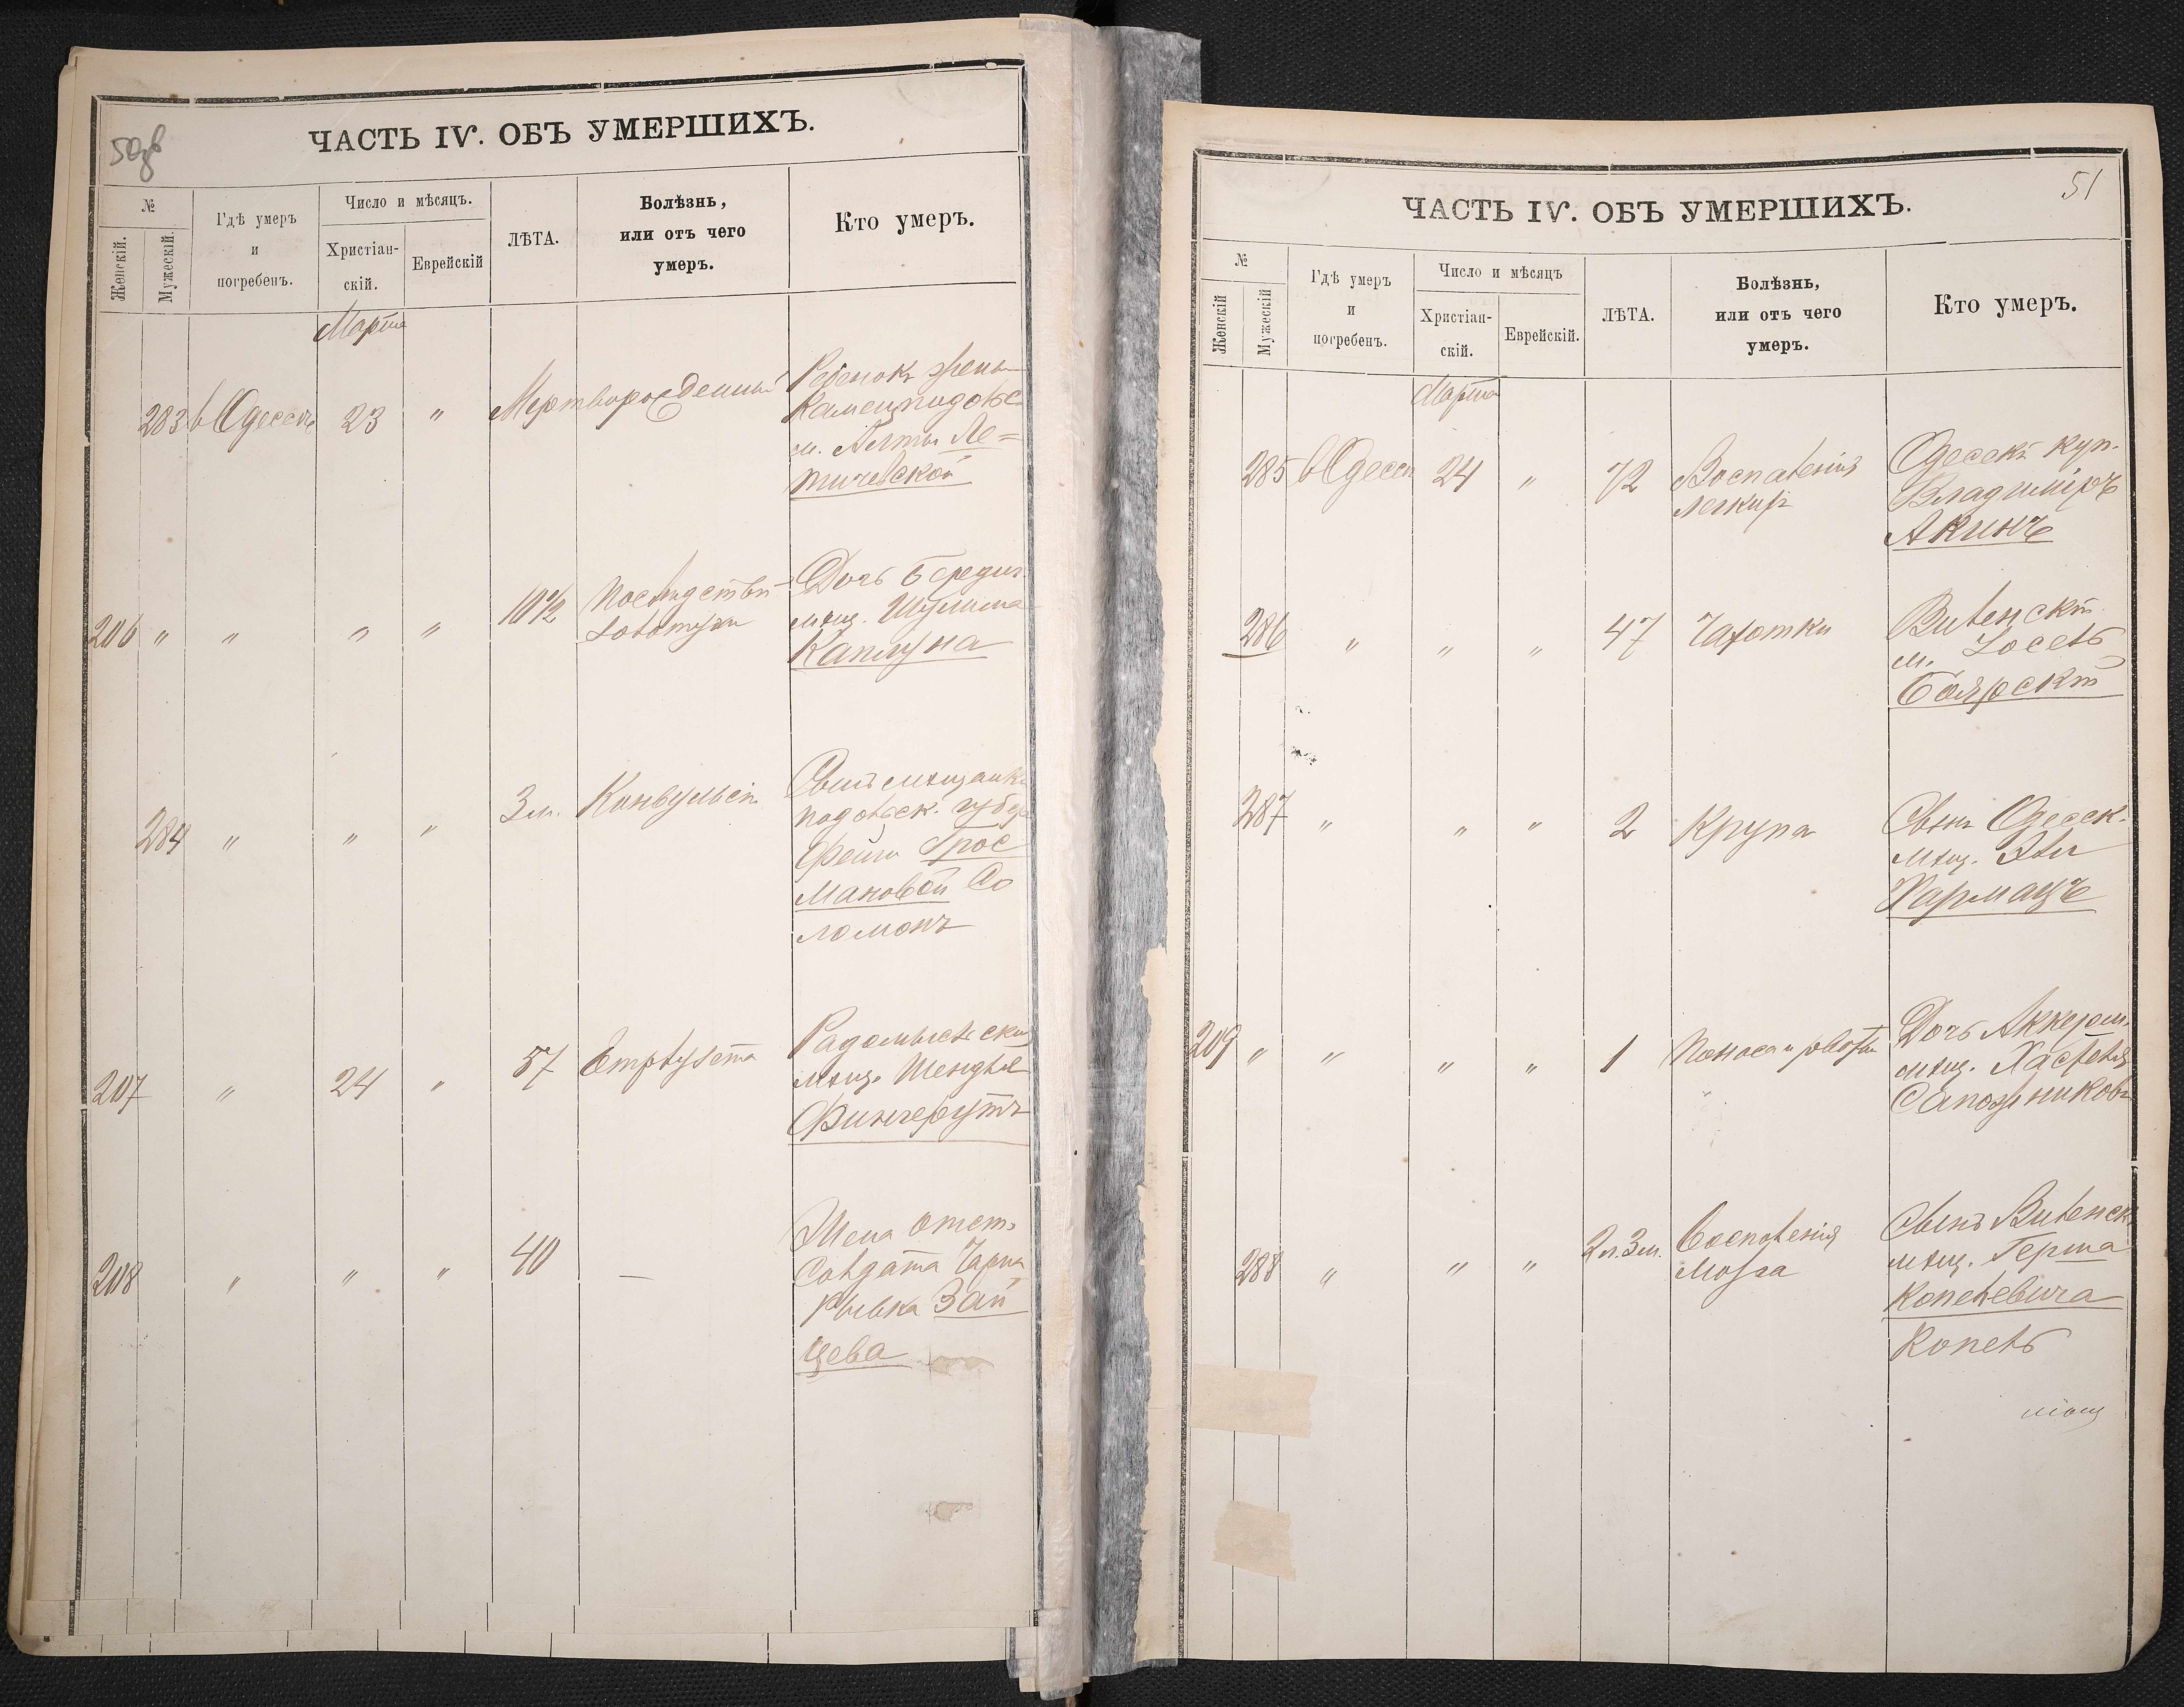 50об
ЧАСТЬ IV. ОБЪ УМЕРШИХЪ.
№
Женскій.
Мужескій.
Гдѣ умеръ
и
погребенъ.
Число и мѣсяцъ.
Христіан-
скій.
Еврейскій
ЛѢТА.
Болѣзнь,
или отъ чего
умеръ.
Кто умеръ.
Марта
283 в Одессѣ 23 " Мертворожденный
Ребенокъ жены
Каменцподольс
м.
Ле=
тичевской
206 " " " " 10½ Последстви
Дочь Бердич.
мѣщ. Шулима
Каплуна
284 " " " 3 м. Конвульсіи
Сынъ мѣщанки
подольск. губер
Фейги Грос
мановой Со
ломонъ
207 " 24 " 57 Emphysema
Радомысльски
мѣщ. Шендля
Фингерутъ
208 " " " 40 —
Жена отст.
Солдата Чарна
Рывка Зай
цева
51
ЧАСТЬ IV. ОБЪ УМЕРШИХЪ.
№
Женскій
Мужескій
Гдѣ умеръ
и
погребенъ.
Число и мѣсяцъ
Христіан-
скій.
Еврейскій.
ЛѢТА.
Болѣзнь,
или отъ чего
умеръ.
Кто умеръ.
Марта
285 в Одессѣ 24 " 72 Воспаленія
легкихъ
Одескъ куп.
Владиміръ
Акинъ
286 " " " 47 Чахотки
Виленскій
м. Іосель
Боярскій
287 " " " 2 Крупа
Сынъ Одесск.
мѣщ. Эли
Пармацъ
209 " " " " 1 Поноса и рвоты
Дочь Аккерм.
мѣщ. Хаскеля
Сапожникова
288 " " " 2 л. 3 м. Воспаленія
мозга
Сынъ Виленск.
мѣщ. Герша
Копелевича
Копель